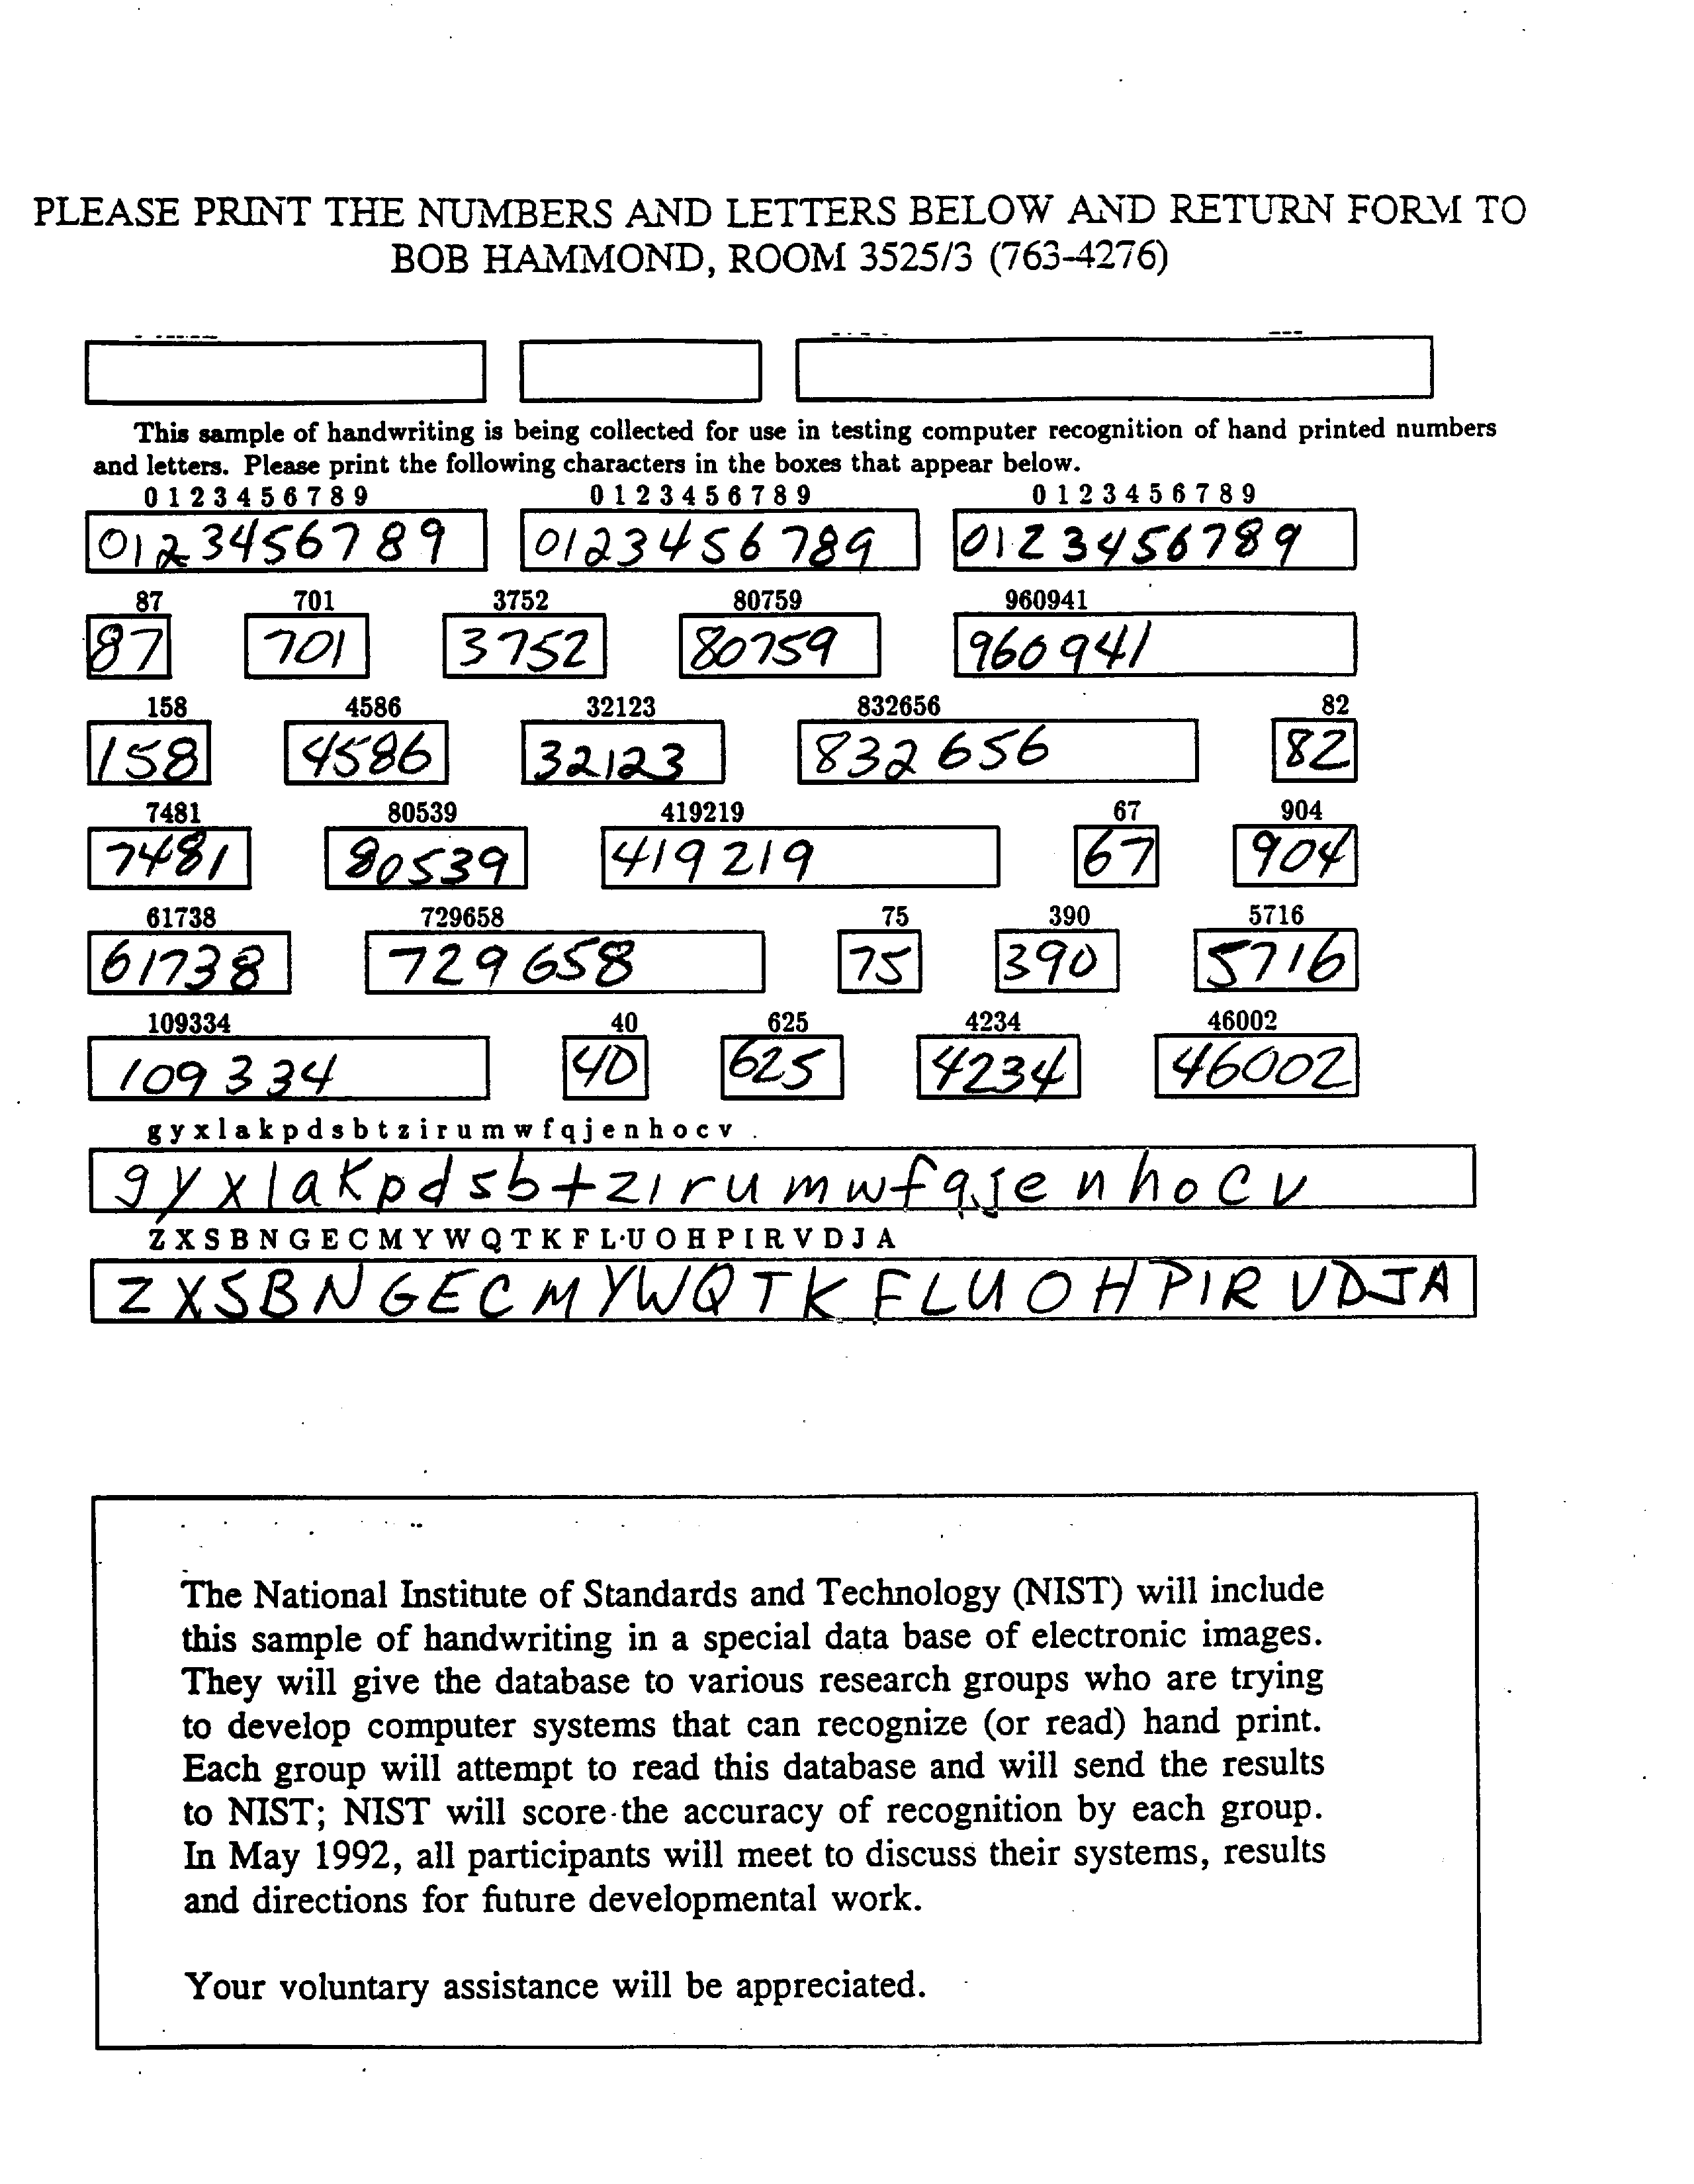 PLEASE PRINT THE NUMBERS AND LETTERS BELOW AND RETURN FORM TO
BOB HAMMOND, ROOM 3525/3 (763-4276)
This sample of handwriting is being collected for use in testing computer recognition of hand printed numbers
and letters. Please print the following characters in the boxes that appear below.
0 1 2 3 4 5 6 7 8 9 0 1 2 3 4 5 6 7 8 9 0 1 2 3 4 5 6 7 8 9
0123456789 0123456789 0123456789
87 701 3752 80759 960941
87 701 3752 80759 960941
158 4586 32123 832656 82
158 4586 32123 832656 82
7481 80539 419219 67 904
7481 80539 419219 67 904
61738 729658 75 390 5716
61738 729658 75 390 5716
109334 40 625 4234 46002
109334 40 625 4234 46002
g y x l a k p d s b t z i r u m w f q j e n h o c v
g y x l a k p d s b t z i r u m w f q j e n h o c v
Z X S B N G E C M Y W Q T K F L U O H P I R V D J A
Z X S B N G E C M Y W Q T K F L U O H P I R V D J A
The National Institute of Standards and Technology (NIST) will include
this sample of handwriting in a special data base of electronic images.
They will give the database to various research groups who are trying
to develop computer systems that can recognize (or read) hand print.
Each group will attempt to read this database and will send the results
to NIST; NIST will score the accuracy of recognition by each group.
In May 1992, all participants will meet to discuss their systems, results
and directions for future developmental work.
Your voluntary assistance will be appreciated.